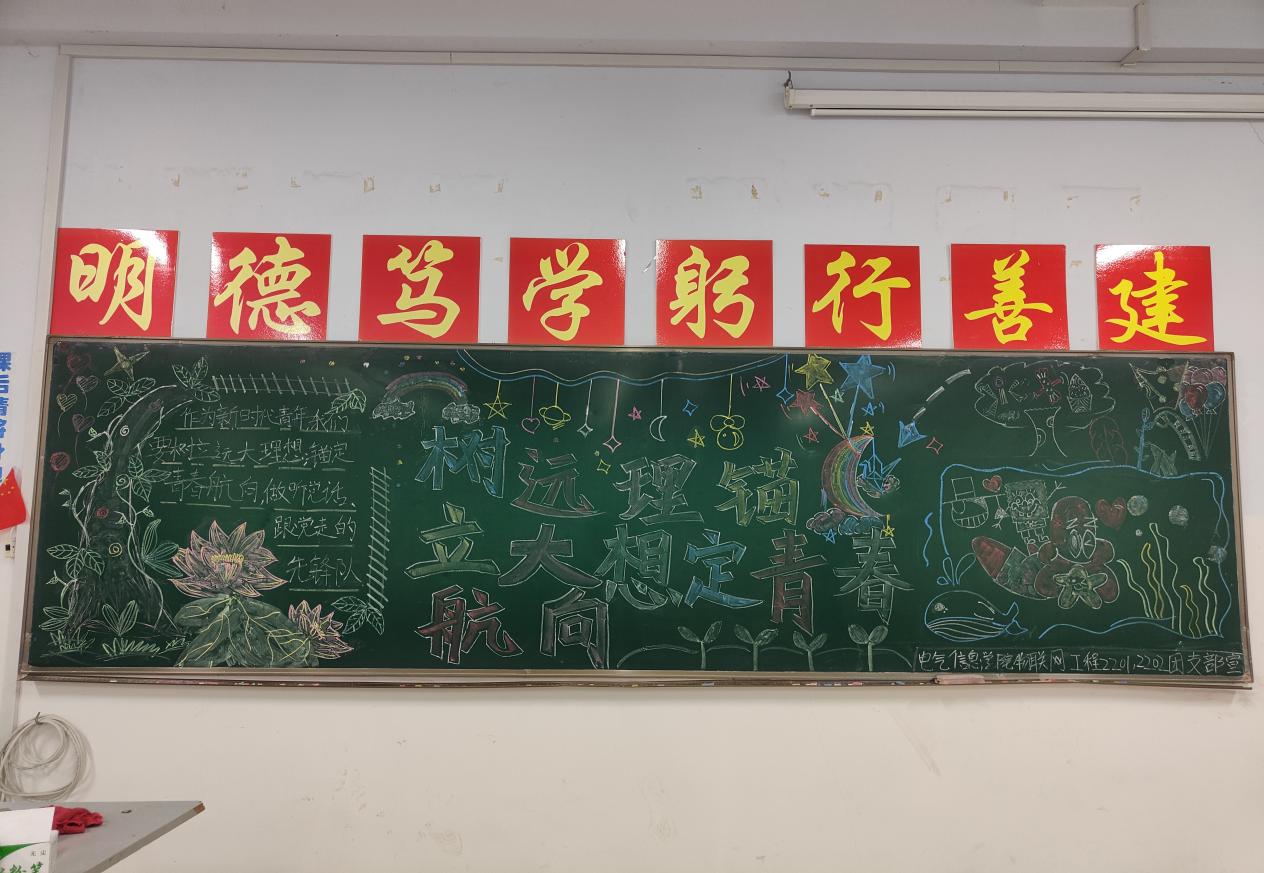 明德笃学躬行善建
作为新时代青年我们
要树立远大理想,锚定
青春航向,做听党话
跟党走的
先锋队
树远理锚
立大想定青春
航向
电气信息学院物联网工程2201,2202团支部宣